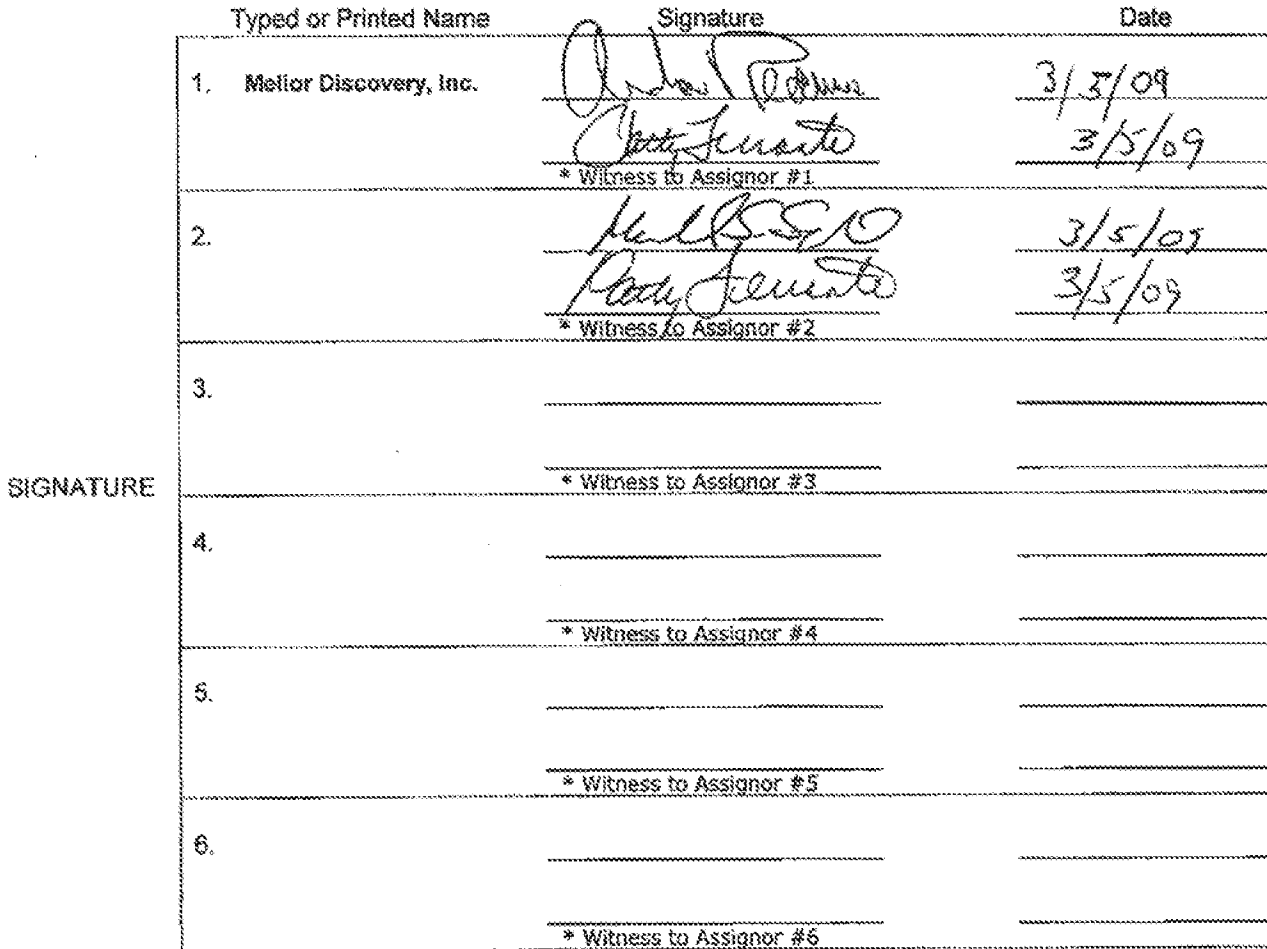 Typed or Printed Name Signature Date
1. Mellor Discovery, Inc. 3/5/09
3/5/09
* Witness to Assignor #1
2. 3/5/09
3/5/09
* Witness to Assignor #2
3.
* Witness to Assignor #3
SIGNATURE
4.
* Witness to Assignor #4
5.
* Witness to Assignor #5
6.
* Witness to Assignor #6